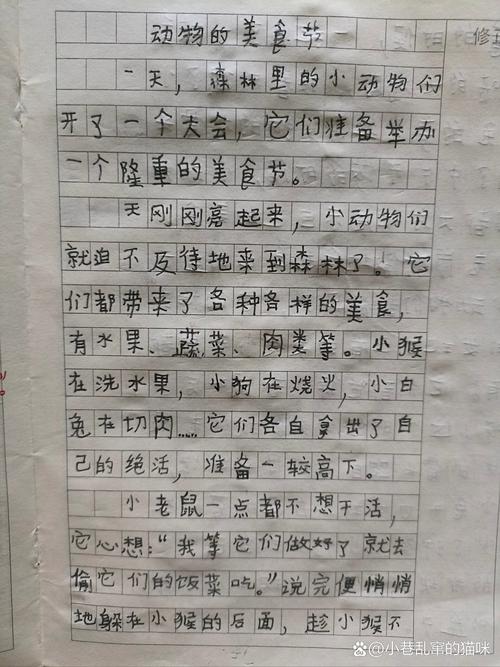 动物的美食节
一天，森林里的小动物们
开了一个大会，它们准备举办
一个隆重的美食节。
天刚刚亮起来，小动物们
就迫不及待地来到森林了。它
们都带来了各种各样的美食，
有水果、蔬菜、肉类等。小猴
在洗水果，小狗在烧火，小白
兔在切肉……它们各自拿出了自
己的绝活，准备一较高下。
小老鼠一点都不想干活，
它心想：“我等它们做好了就去
偷它们的饭菜吃。”说完便悄悄
地躲在小猴的后面，趁小猴不
修正
@小巷乱窜的猫咪